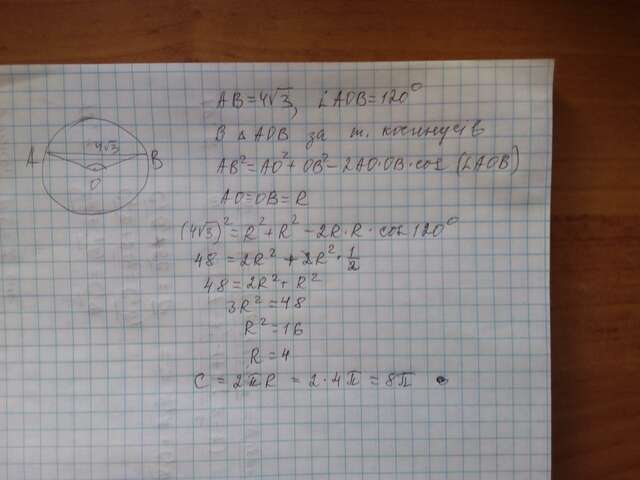 AB=4√3, ∠AOB=120°
В △ AOB за т. косинусів
AB²=AO²+OB²-2AO·OB·cos(∠AOB)
AO=OB=R
(4√3)²=R²+R²-2R·R·cos120°
48=2R²+2R²·1/2
48=2R²+R²
3R²=48
R²=16
R=4
C=2πR=2·4π=8π
4√3
A B
O